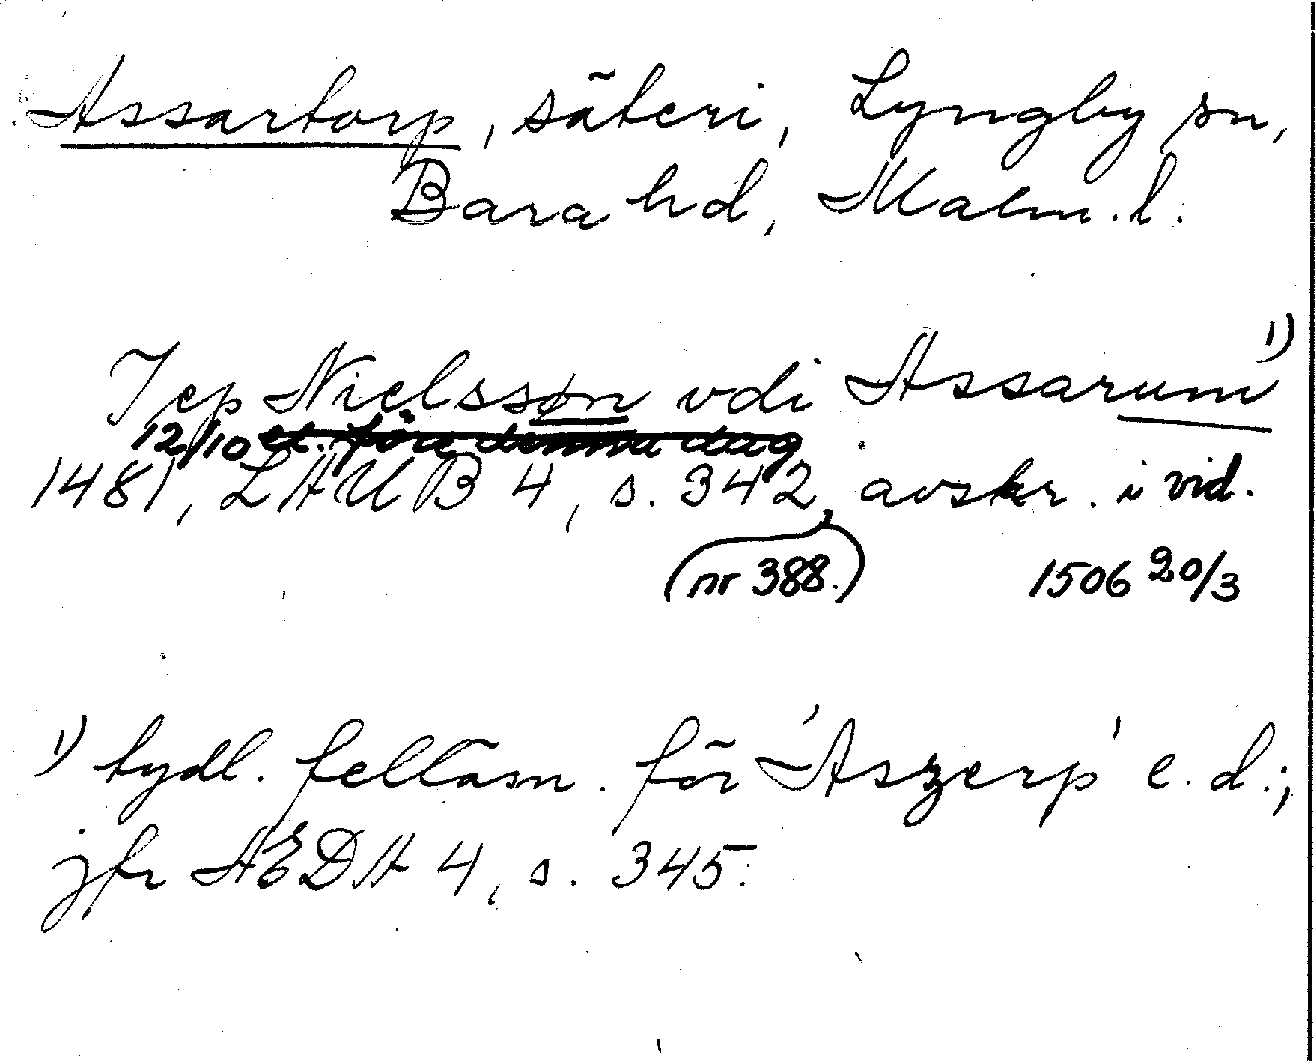 Assartorp, säteri, Lyngby sn,
Bara hd, Malm. l.
Jep Nielssøn vdi Assarum 1)
12/10 el. före denna dag
1481, LAUB 4, s. 342, avskr. i vid.
(nr 388.) 1506 20/3
1) tydl. felläsn. för 'Aszerp' e. d.;
jfr AEDA 4, s. 345.